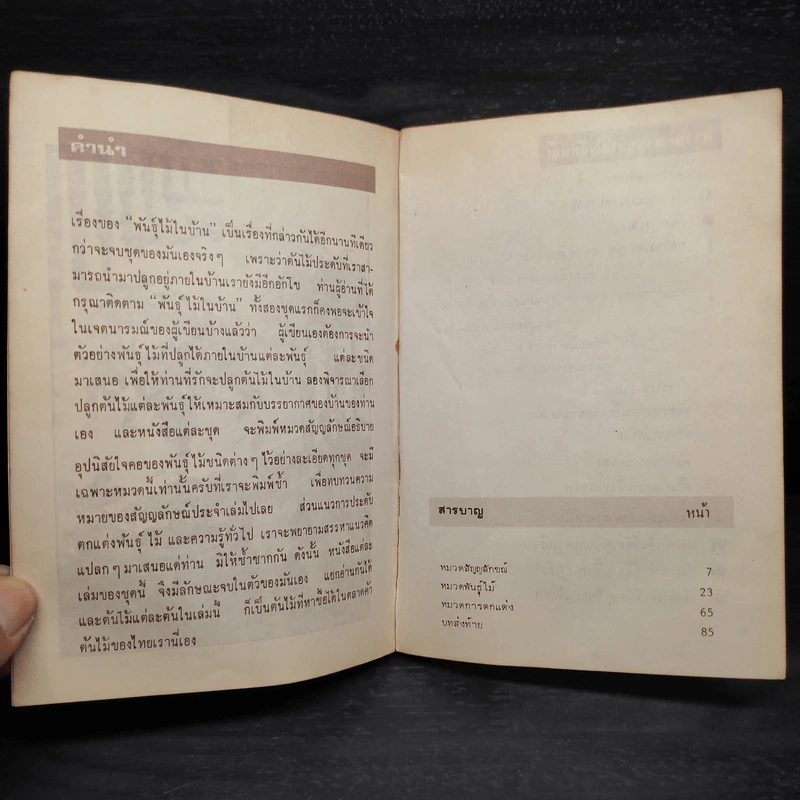 คำนำ
เรื่องของ “พันธุ์ไม้ในบ้าน” เป็นเรื่องที่กล่าวกันได้อีกนานทีเดียว
กว่าจะจบชุดของมันเองจริงๆ เพราะว่าต้นไม้ประดับที่เราสา-
มารถนำมาปลูกอยู่ภายในบ้านเรายังมีอีกอักโข ท่านผู้อ่านที่ได้
กรุณาติดตาม “พันธุ์ไม้ในบ้าน” ทั้งสองชุดแรกก็คงพอจะเข้าใจ
ในเจตนารมณ์ของผู้เขียนบ้างแล้วว่า ผู้เขียนเองต้องการจะนำ
ตัวอย่างพันธุ์ไม้ที่ปลูกได้ภายในบ้านแต่ละพันธุ์ แต่ละชนิด
มาเสนอ เพื่อให้ท่านที่รักจะปลูกต้นไม้ในบ้าน ลองพิจารณาเลือก
ปลูกต้นไม้แต่ละพันธุ์ให้เหมาะสมกับบรรยากาศของบ้านของท่าน
เอง และหนังสือแต่ละชุด จะพิมพ์หมวดสัญญลักษณ์อธิบาย
อุปนิสัยใจคอของพันธุ์ไม้ชนิดต่างๆ ไว้อย่างละเอียดทุกชุด จะมี
เฉพาะหมวดนี้เท่านั้นครับที่เราจะพิมพ์ซ้ำ เพื่อทบทวนความ
หมายของสัญญลักษณ์ประจำเล่มไปเลย ส่วนแนวการประดับ
ตกแต่งพันธุ์ไม้ และความรู้ทั่วไป เราจะพยายามสรรหาแนวคิด
แปลกๆ มาเสนอแด่ท่าน มิให้ซ้ำซากกัน ดังนั้น หนังสือแต่ละ
เล่มของชุดนี้ จึงมีลักษณะจบในตัวของมันเอง แยกอ่านกันได้
และต้นไม้แต่ละต้นในเล่มนี้ ก็เป็นต้นไม้ที่หาซื้อได้ในตลาดค้า
ต้นไม้ของไทยเรานี่เอง
สารบาญ หน้า
หมวดสัญญลักขณ์ 7
หมวดพันธุ์ไม้ 23
หมวดการตกแต่ง 65
บทส่งท้าย 85